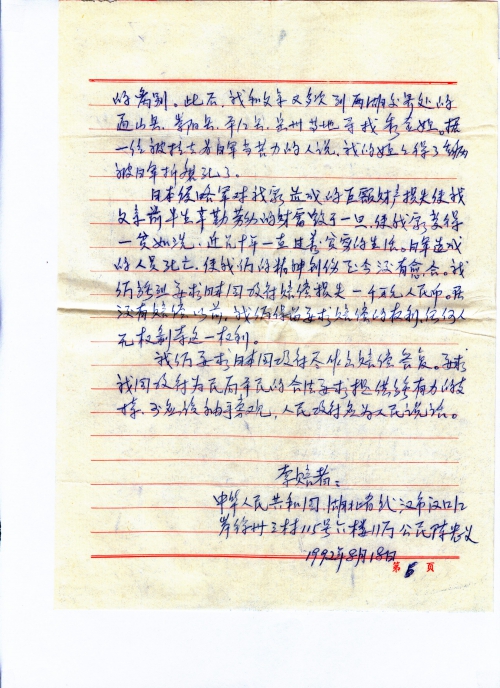 的离别。此后,我和父亲又多次到两湖交界处的
通山县、崇阳县、平江县、岳州等地寻找
一位被拉去为日军当苦力的人说,我的姐姐得了
被日军折磨死了。
日本侵略军对我家造成的巨额财产损失使我
父亲前半生辛勤劳动的财富毁于一旦,使我家变得
一贫如洗,近几十年一直过着贫穷的生活。日军造成
的人员死亡,使我们的精神创伤至今没有愈合。我
们强烈要求日本国政府赔偿损失一千万元人民币。在
没有赔偿以前,我们保留要求赔偿的权利,任何人
无权剥夺这一权利。
我们要求日本国政府尽快出赔偿答复。要求
我国政府为民间平民的合法要求提供强有力的支
持,不应该袖手旁观,人民政府应为人民说话。
索赔者:
中华人民共和国湖北省武汉市汉口江
岸徐州三村115号六楼11房公民陈忠义
1992年8月18日
第5页